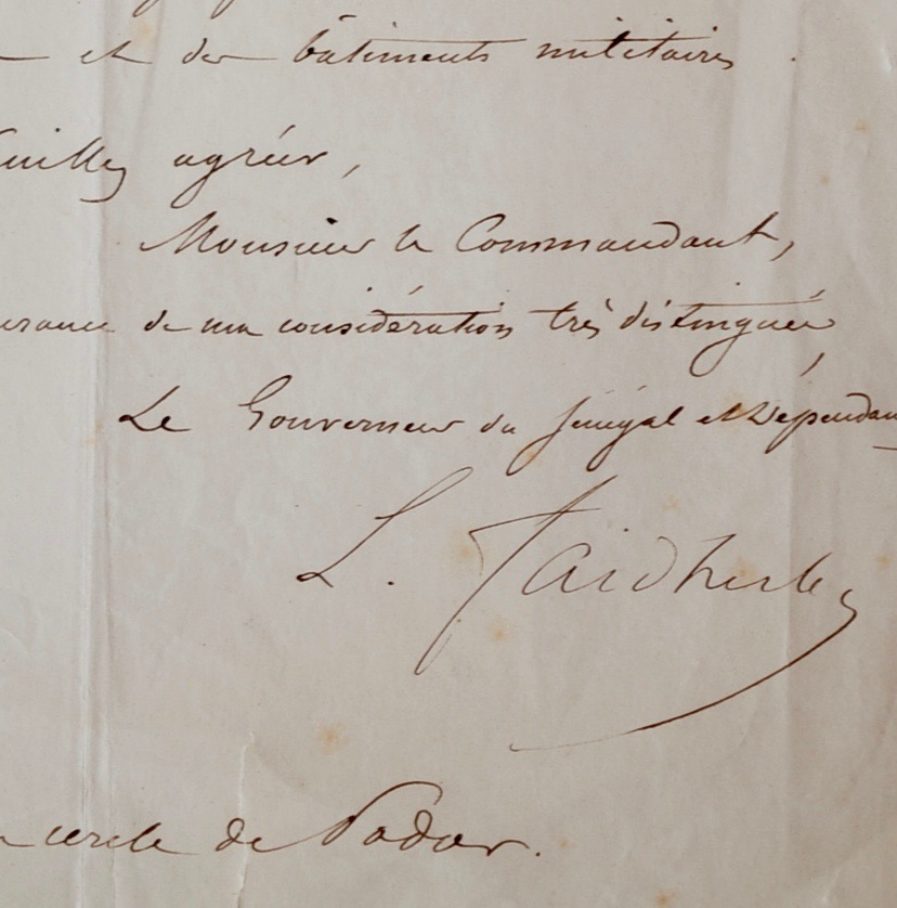 et des bâtiments militaires.
agréer,
Monsieur le Commandant,
urance de ma considération très distinguée
Le Gouverneur du Sénégal et Dépendan
L. Faidherbe
cercle de Podor.